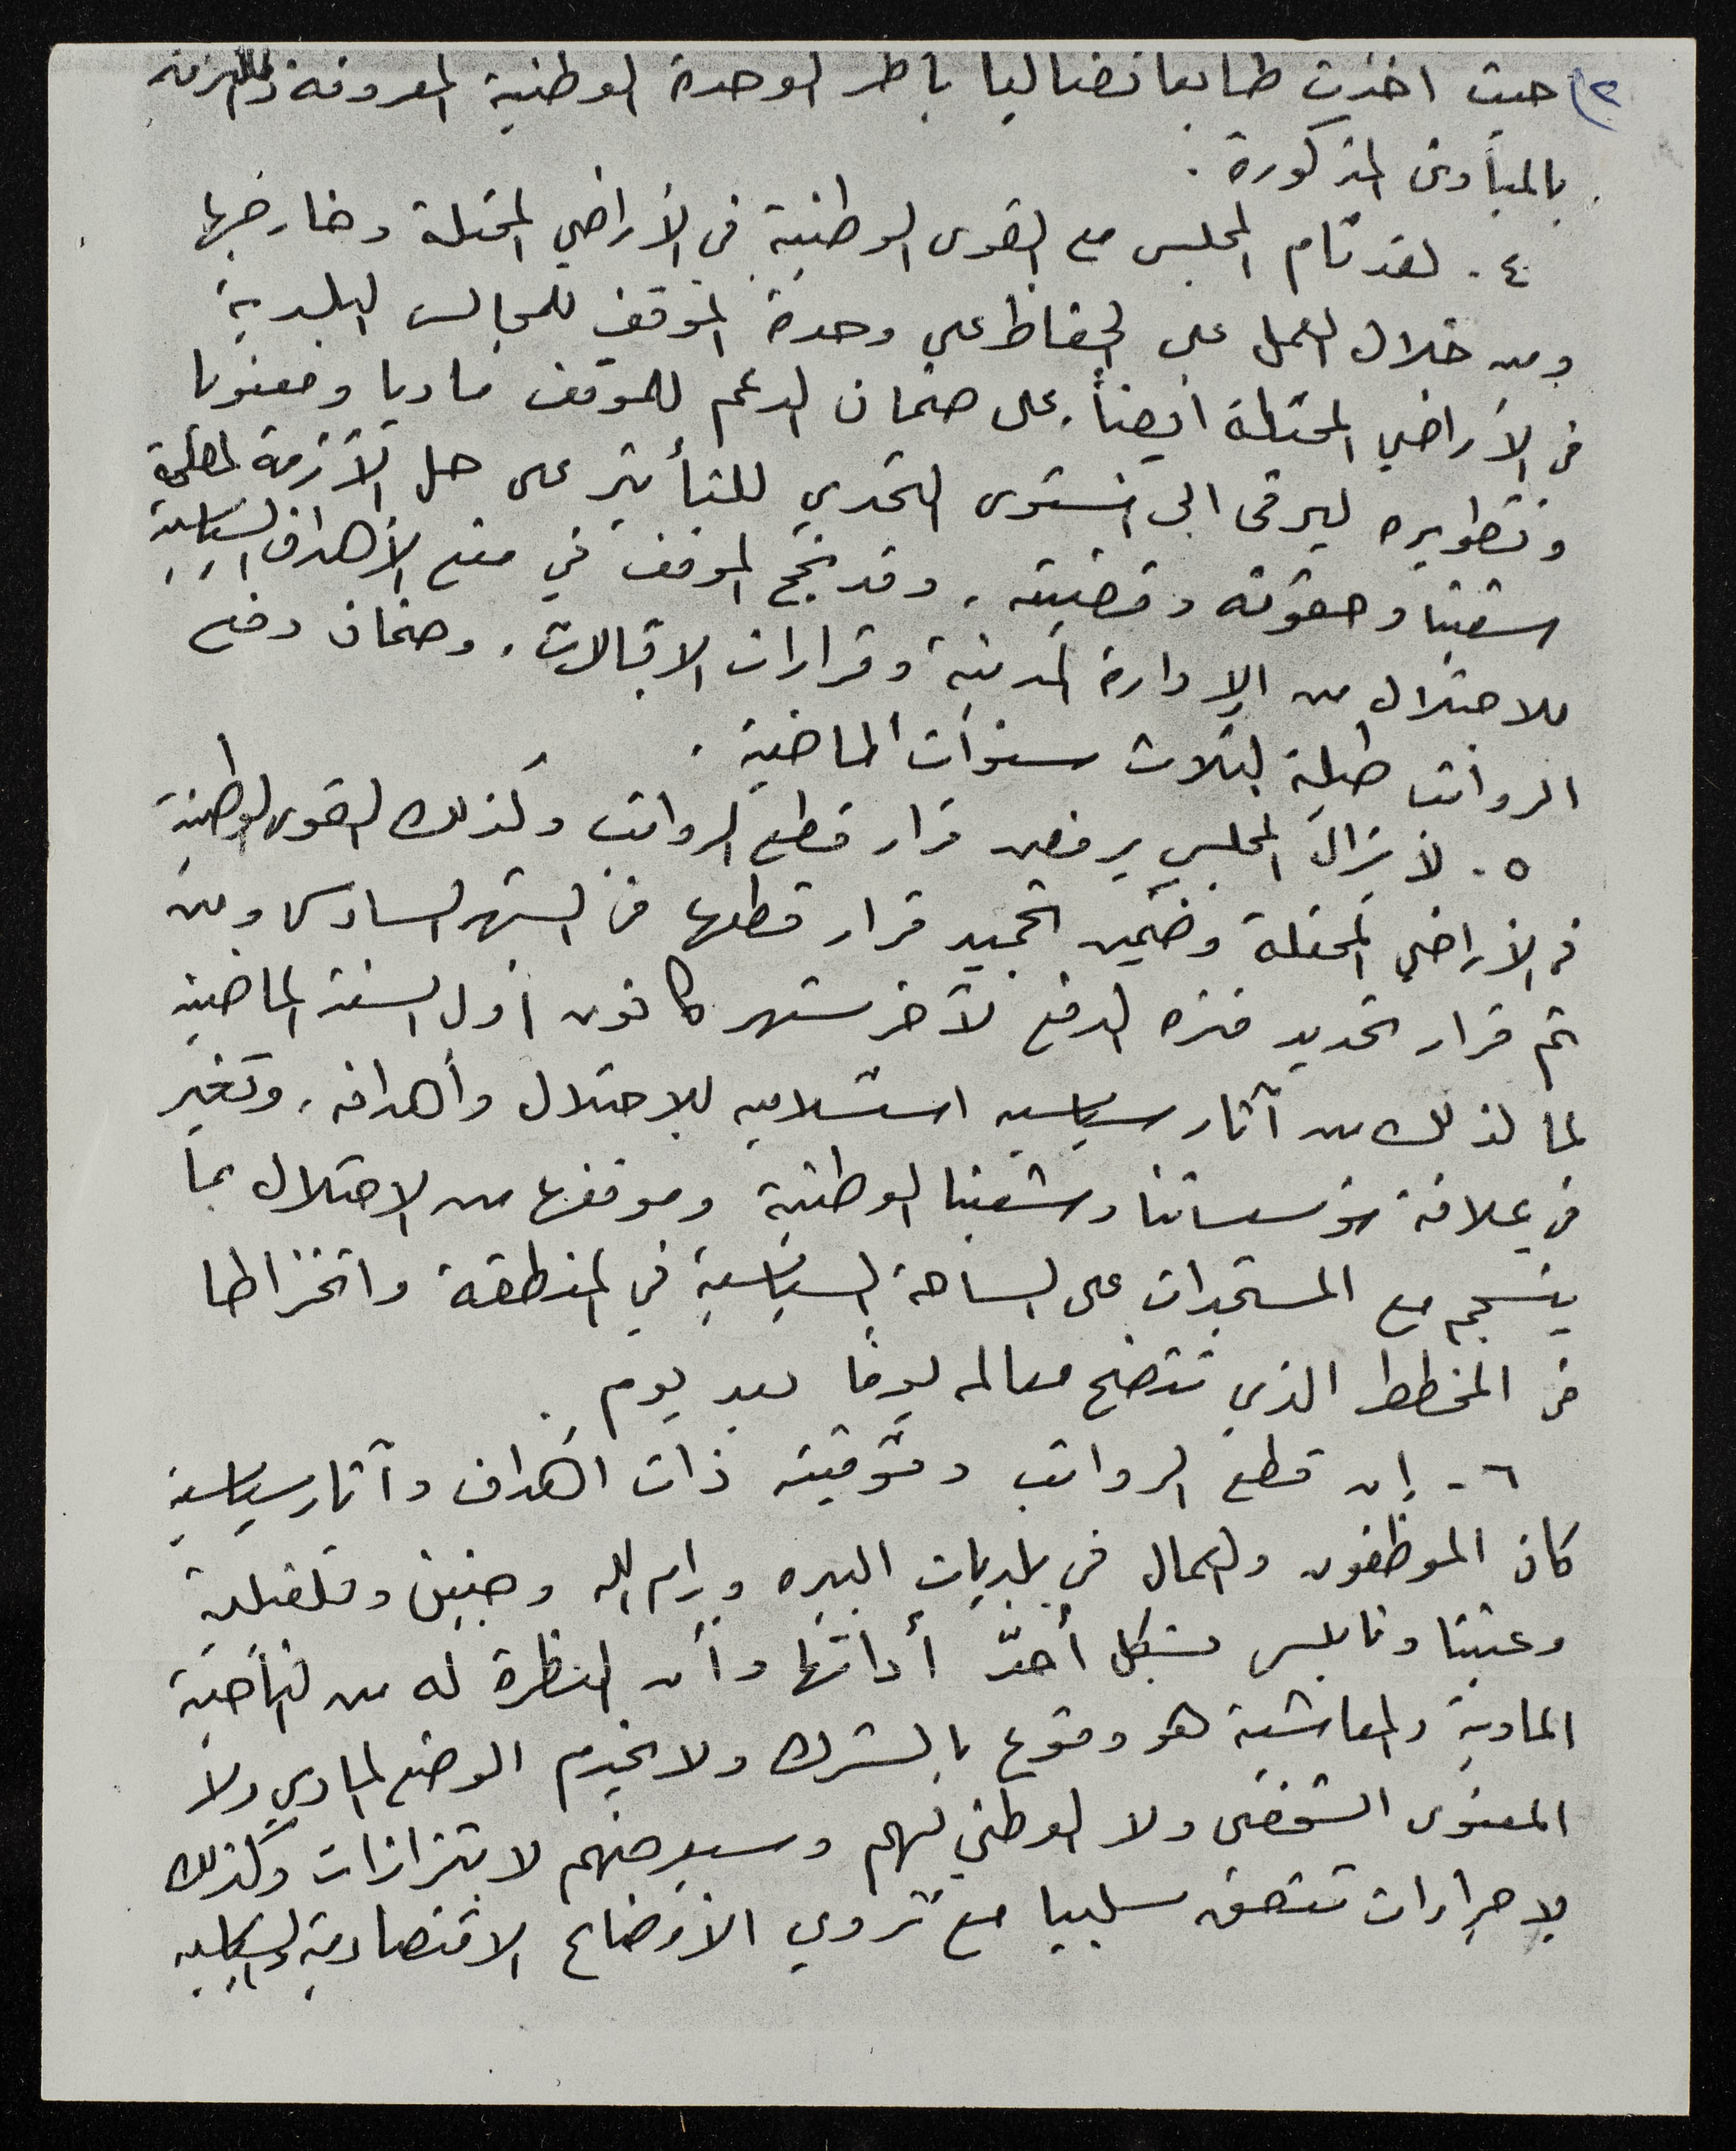 ٢) حيث اخذت طابعا نضاليا باطر الوحدة الوطنية المعروفة والملتزمة
بالمبادئ المذكورة .
٤. لقد قام المجلس مع القوى الوطنية في الأراضي المحتلة وخارجها
ومن خلال العمل على الحفاظ على وحدة الموقف للمجالس البلدية
في الأراضي المحتلة ايضاً، على ضمان الدعم للموقف ماديا ومعنويا
وتطويره ليرقى الى مستوى التحدي للتأثير على حل الأزمة لمصلحة
شعبنا وحقوقه وقضيته ، وقد نجح الموقف في منع الأهداف السياسية
للاحتلال من الإدارة المدنية وقرارات الاقالات ، وضمان دفع
الرواتب طيلة الثلاث سنوات الماضية .
٥. لا يزال المجلس يرفض قرار قطع الرواتب وكذلك القوى الوطنية
في الأراضي المحتلة وضمن تجميد قرار قطعها في الشهر السادس ومن
ثم قرار تحديد فترة الدفع لآخر شهر كانون أول السنة الماضية
لما لذلك من آثار سياسيه استسلاميه للاحتلال وأهدافه ، وتغير
في علاقة مؤسساتنا وشعبنا الوطنية وموقفها من الاحتلال بما
ينسجم مع المستجدات على الساحة السياسية في المنطقة وانخراطا
في المخطط الذي تتضح معالمه يوما بعد يوم .
٦- إن قطع الرواتب وتوقيته ذات اهداف وآثار سياسية
كان الموظفون والعمال في بلديات البيره ورام الله وجنين وقلقيلية
وعنبتا ونابلس بشكل أحدّ أداتها وأن النظرة له من الناحية
المادية والمعاشية هو وقوع بالشرك ولا يخدم الوضع المادي ولا
المعنوى الشخصى ولا الوطني لهم وسيعرضهم لابتزازات وكذلك
لإجراءات تتصف سلبيا مع تردي الأوضاع الاقتصادية والسياسيه